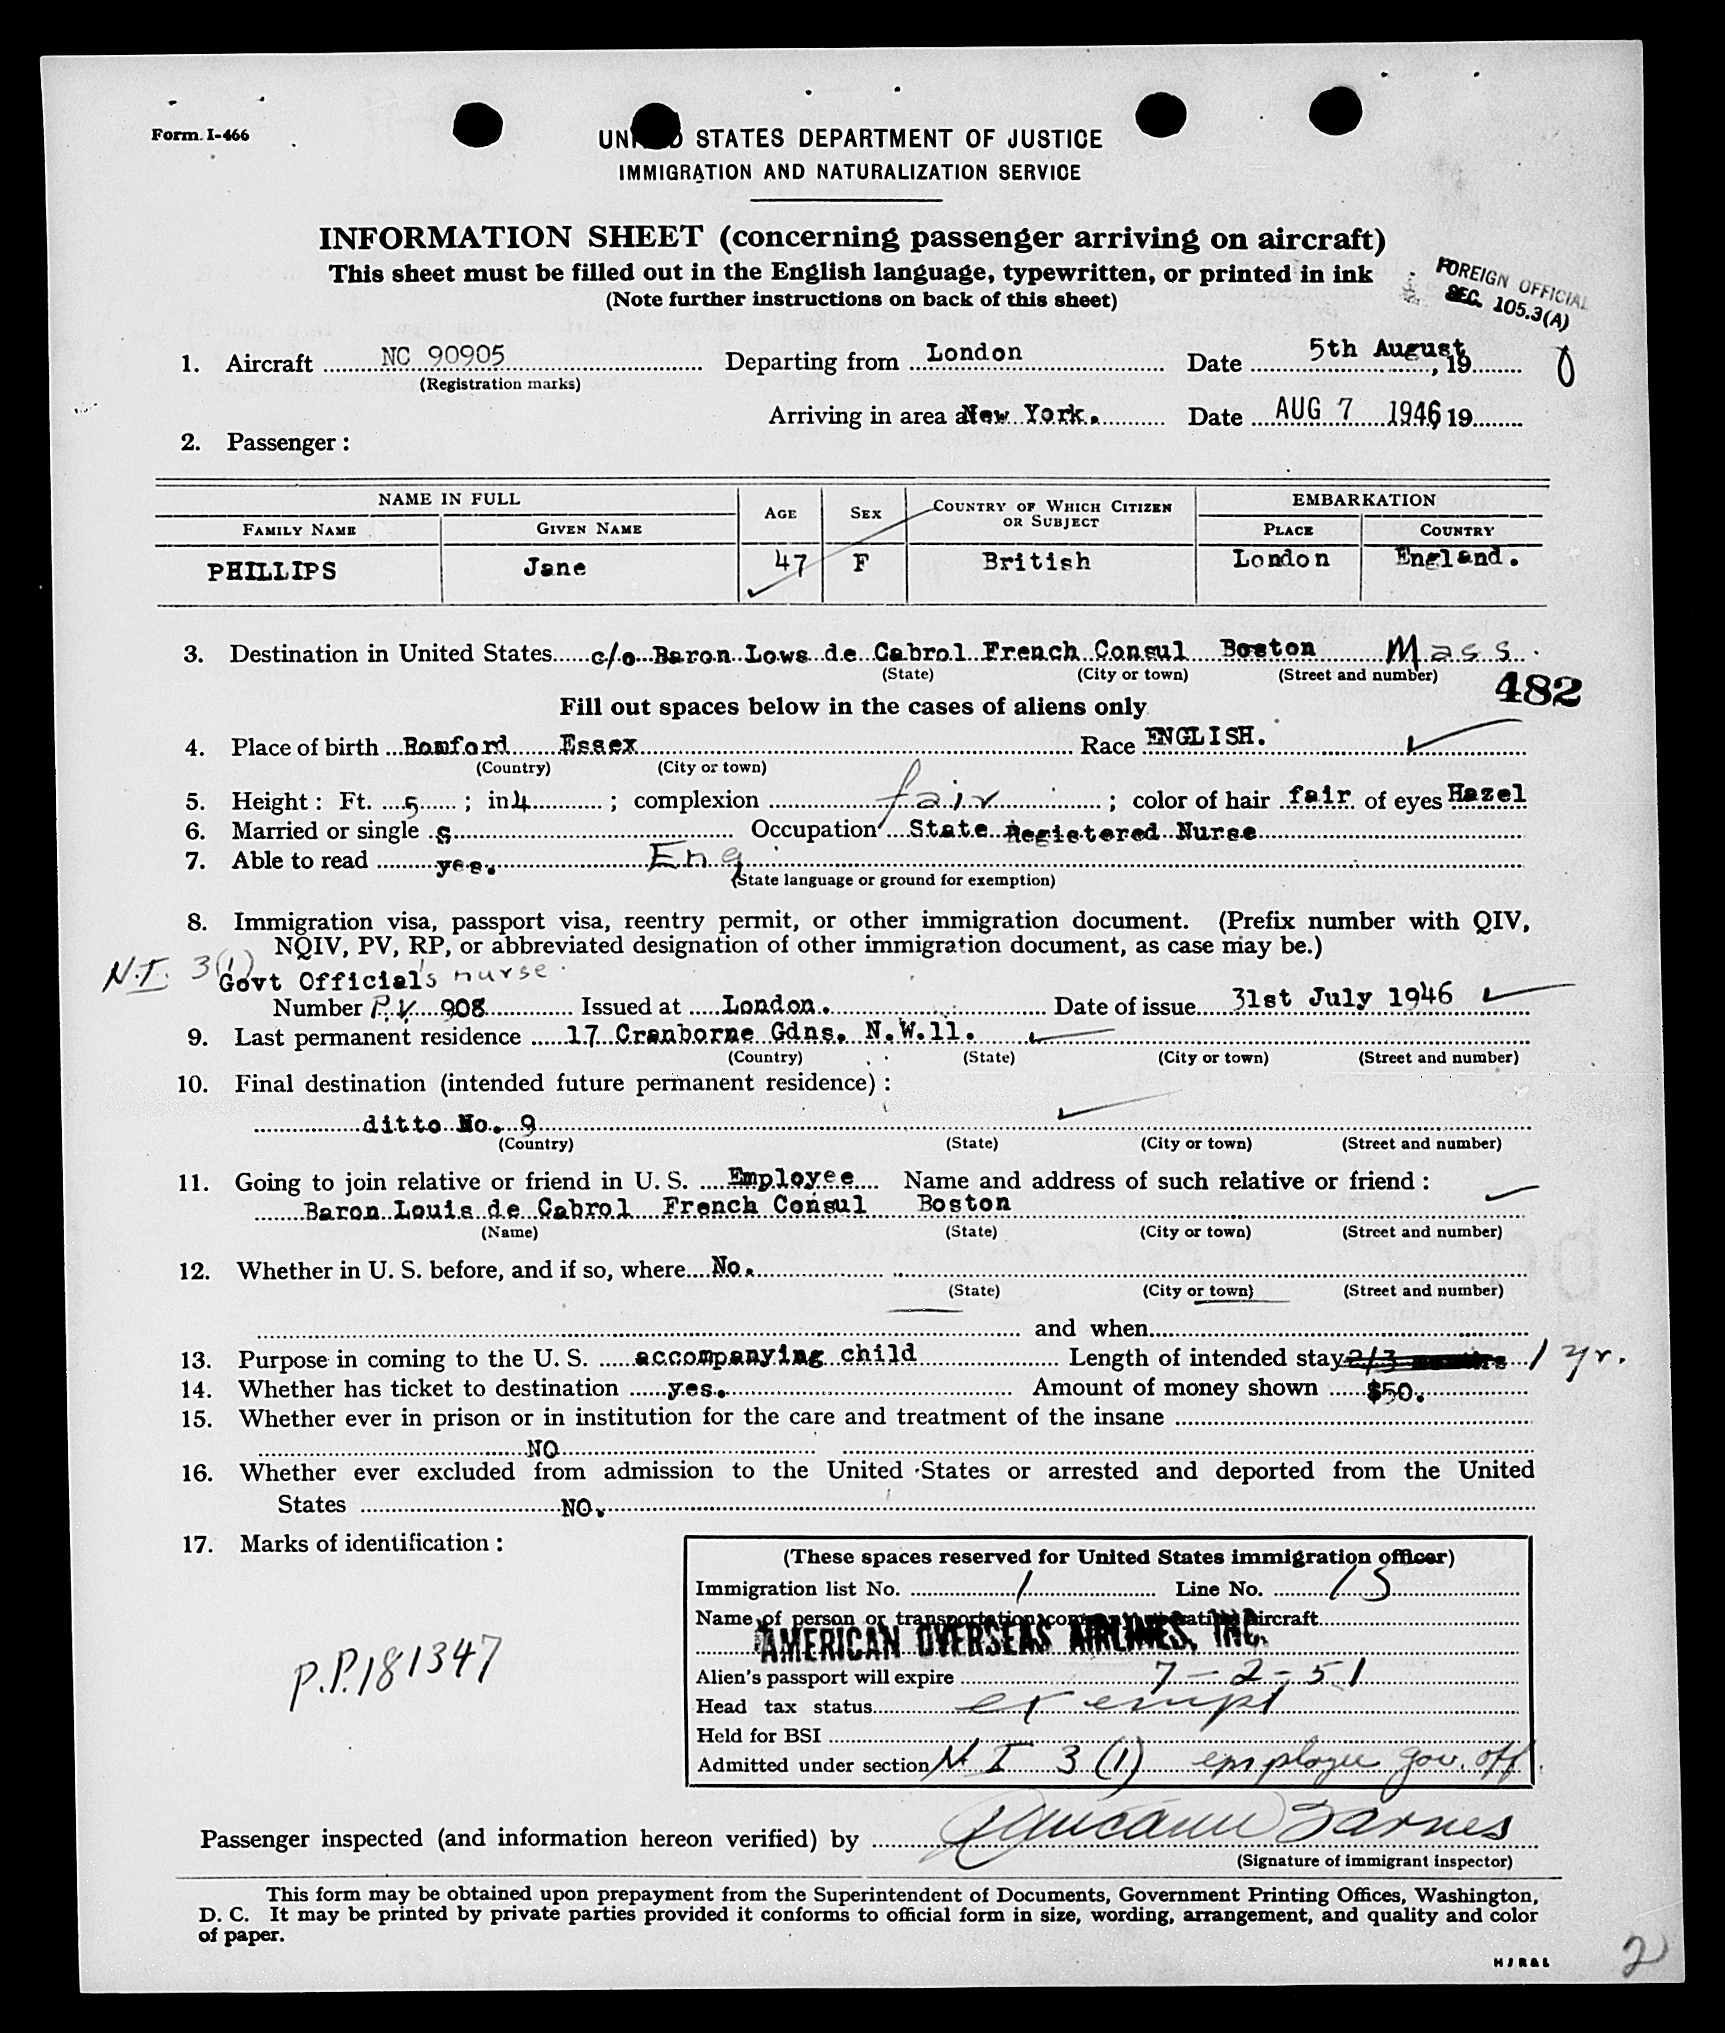 Form I-466
UNITED STATES DEPARTMENT OF JUSTICE
IMMIGRATION AND NATURALIZATION SERVICE
INFORMATION SHEET (concerning passenger arriving on aircraft)
This sheet must be filled out in the English language, typewritten, or printed in ink
(Note further instructions on back of this sheet)
FOREIGN OFFICIAL
SEC. 105.3(A)
1. Aircraft NC 90905 Departing from London Date 5th August, 19
(Registration marks)
Arriving in area at New York. Date AUG 7 1946, 19
2. Passenger:
NAME IN FULL AGE SEX COUNTRY OF WHICH CITIZEN OR SUBJECT EMBARKATION
FAMILY NAME GIVEN NAME PLACE COUNTRY
PHILLIPS Jane 47 F British London England.
3. Destination in United States c/o Baron Lows de Cabrol French Consul Boston Mass.
(State) (City or town) (Street and number)
482
Fill out spaces below in the cases of aliens only
4. Place of birth Romford Essex Race ENGLISH.
(Country) (City or town)
5. Height: Ft. 5; in 4; complexion fair; color of hair fair of eyes Hazel
6. Married or single S Occupation State Registered Nurse
7. Able to read yes. Eng
(State language or ground for exemption)
8. Immigration visa, passport visa, reentry permit, or other immigration document. (Prefix number with QIV,
NQIV, PV, RP, or abbreviated designation of other immigration document, as case may be.)
N.I. 3(1)
Govt Official's nurse
Number P.V. 908 Issued at London. Date of issue 31st July 1946
9. Last permanent residence 17 Cranborne Gdns. N.W.11.
(Country) (State) (City or town) (Street and number)
10. Final destination (intended future permanent residence):
ditto No. 9
(Country) (State) (City or town) (Street and number)
11. Going to join relative or friend in U. S. Employee Name and address of such relative or friend:
Baron Louis de Cabrol French Consul Boston
(Name) (State) (City or town) (Street and number)
12. Whether in U. S. before, and if so, where No.
(State) (City or town) (Street and number)
and when
13. Purpose in coming to the U. S. accompanying child Length of intended stay 2/3 months 1 yr.
14. Whether has ticket to destination yes. Amount of money shown $50.
15. Whether ever in prison or in institution for the care and treatment of the insane
NO
16. Whether ever excluded from admission to the United States or arrested and deported from the United
States NO.
17. Marks of identification:
P.P.181347
(These spaces reserved for United States immigration officer)
Immigration list No. 1 Line No. 13
Name of person or transportation company operating aircraft
AMERICAN OVERSEAS AIRLINES, INC.
Alien's passport will expire 7-2-51
Head tax status exempt
Held for BSI
Admitted under section N I 3(1) employee gov. off.
Passenger inspected (and information hereon verified) by
(Signature of immigrant inspector)
This form may be obtained upon prepayment from the Superintendent of Documents, Government Printing Offices, Washington,
D. C. It may be printed by private parties provided it conforms to official form in size, wording, arrangement, and quality and color
of paper.
2